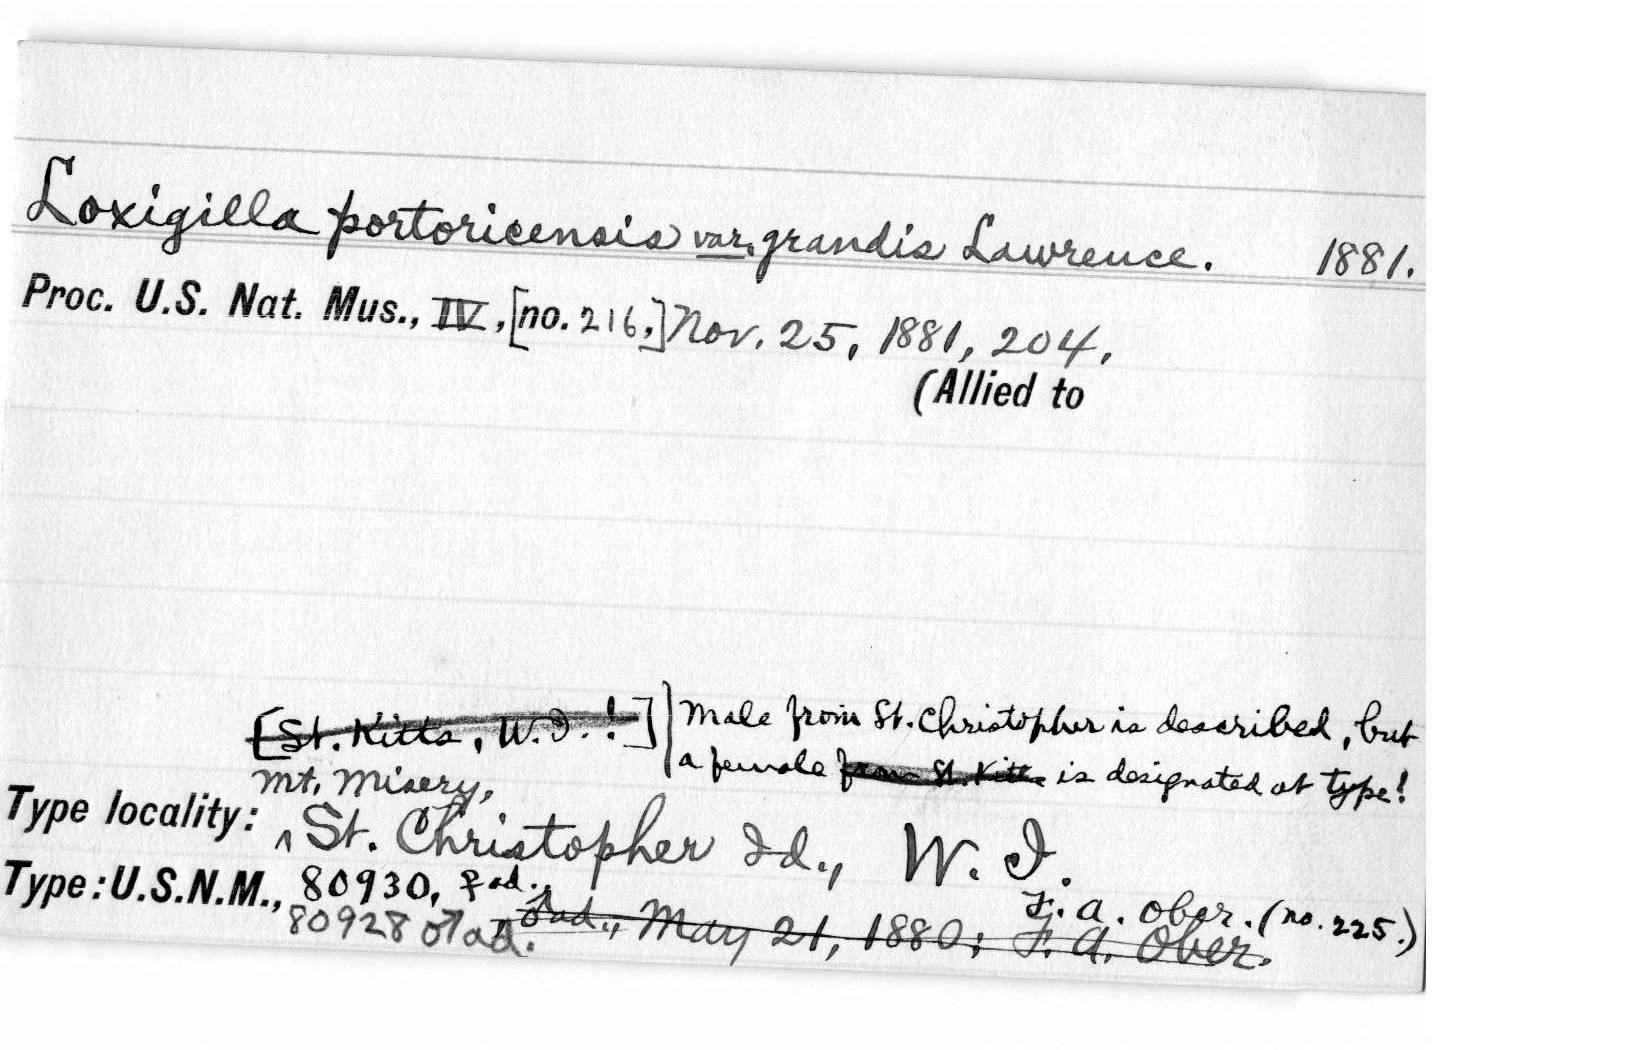 Loxigilla portoricensis var. grandis Lawrence. 1881.
Proc. U.S. Nat. Mus., IV, [no. 216,] Nov. 25, 1881, 204.
(Allied to
[St. Kitts, W.I.!] Male from St. Christopher is described, but
a female from St. Kitts is designated at type!
Mt. Misery,
Type locality: ^ St. Christopher Id., W. I.
Type: U.S.N.M., 80930, ♀ ad. F. A. Ober. (no. 225.)
80928 ♂ ad. ♂ ad., May 21, 1880; F. A. Ober.